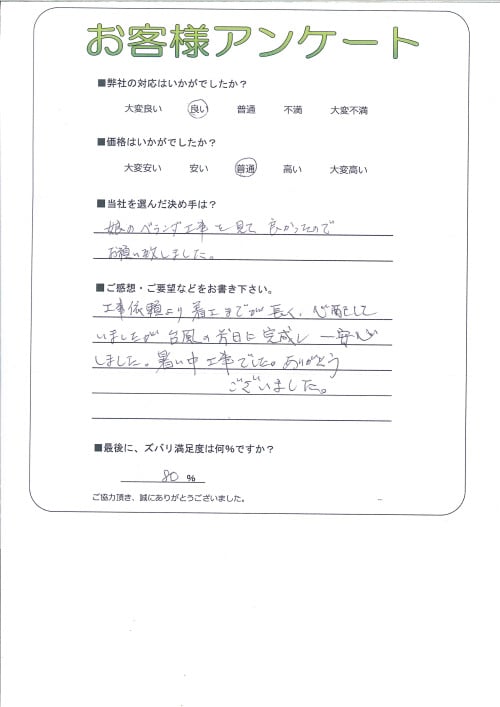 お客様アンケート
■弊社の対応はいかがでしたか？
大変良い 良い 普通 不満 大変不満
■価格はいかがでしたか？
大変安い 安い 普通 高い 大変高い
■当社を選んだ決め手は？
娘のベランダ工事を見て良かったので
お願い致しました。
■ご感想・ご要望などをお書き下さい。
工事依頼より着工までが長く、心配して
いましたが台風の前日に完成し一安心
しました。暑い中工事でした。ありがとう
ございました。
■最後に、ズバリ満足度は何％ですか？
80 ％
ご協力頂き、誠にありがとうございました。